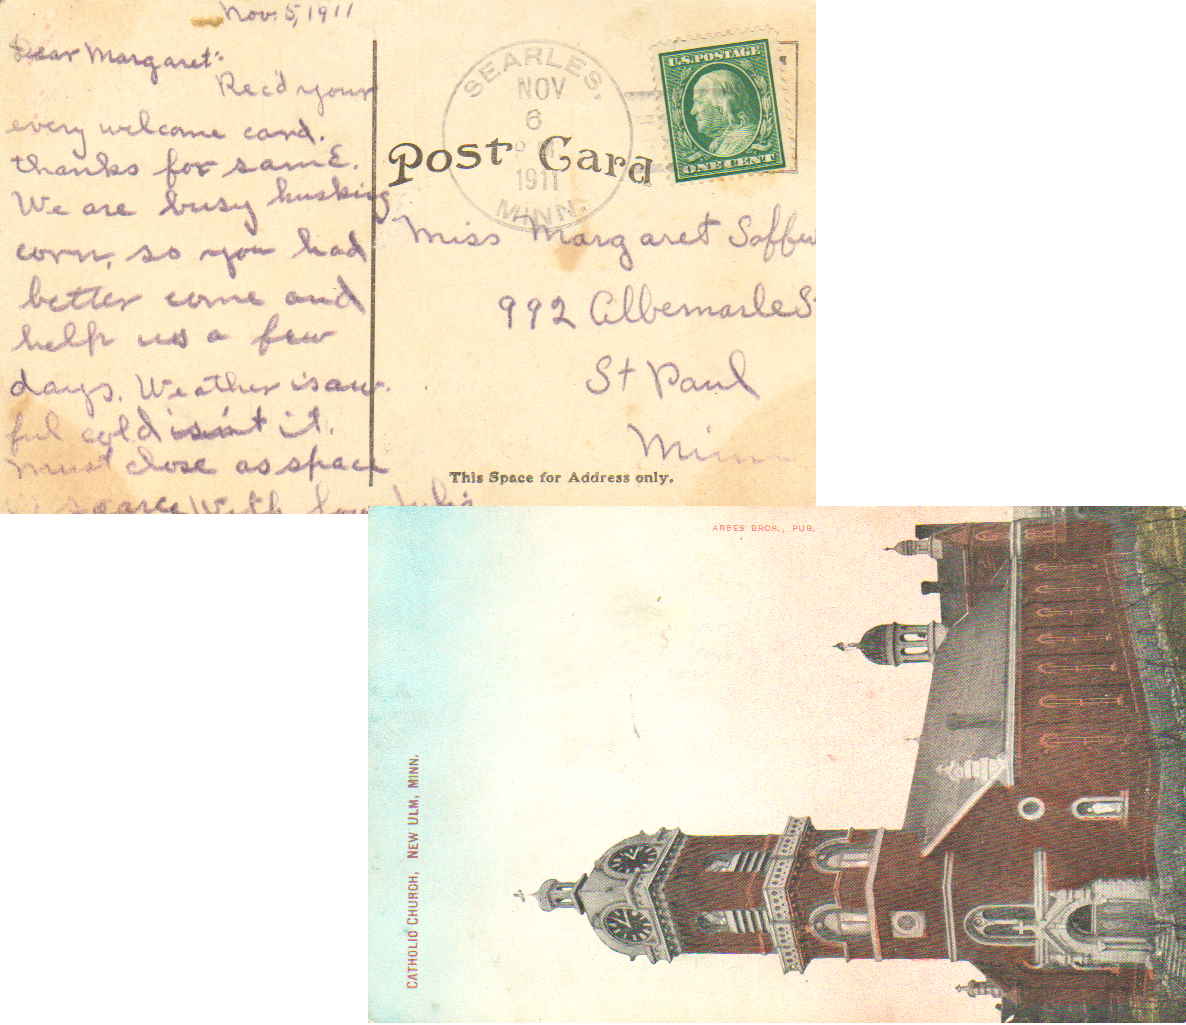 Nov. 5, 1911
Dear Margaret:
Rec'd your
every welcome card.
thanks for same.
We are busy husking
corn, so you had
better come and
help us a few
days. Weather is aw-
ful cold isn't it.
Must close as space
is scarce With love
SEARLES,
NOV
6
1911
MINN.
U.S. POSTAGE
ONE CENT
Post Card
Miss Margaret
992 Albemarle St
St Paul
Minn
This Space for Address only.
ARBES BROS., PUB.
CATHOLIC CHURCH, NEW ULM, MINN.